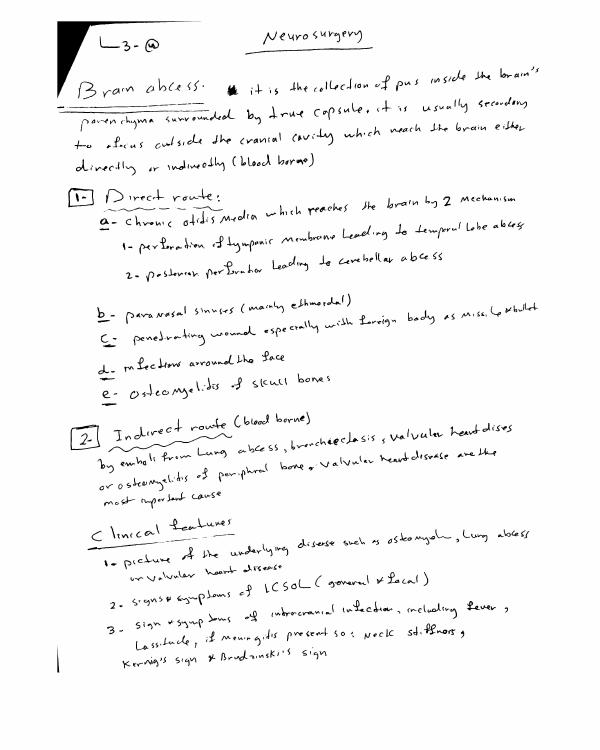 L3-@
Neurosurgery
Brain abcess. it is the collection of pus inside the brain's
parenchyma surrounded by true capsule. it is usually secondary
to a focus outside the cranial cavity which reach the brain either
directly or indirectly (blood borne)
1- Direct route:
a- chronic otitis media which reaches the brain by 2 mechanism
1- perforation of tympanic membrane leading to temporal lobe abcess
2- posterior perforation leading to cerebellar abcess
b- paranasal sinuses (mainly ethmoidal)
c- penetrating wound especially with foreign body as missile & bullet
d- infections arround the face
e- osteomyelitis of skull bones
2- Indirect route (blood borne)
by emboli from Lung abcess, bronchiectasis, valvular heart diseas
or osteomyelitis of peripheral bone. valvular heart disease are the
most important cause
Clinical features
1- picture of the underlying disease such as osteomyeln, Lung abcess
or valvular heart disease
2- signs & symptoms of ICSOL (general & focal)
3- sign & symptoms of intracranial infection, including fever,
Lassitude, if meningitis present so: Neck stiffness,
Kernig's sign & Brudzinski's sign